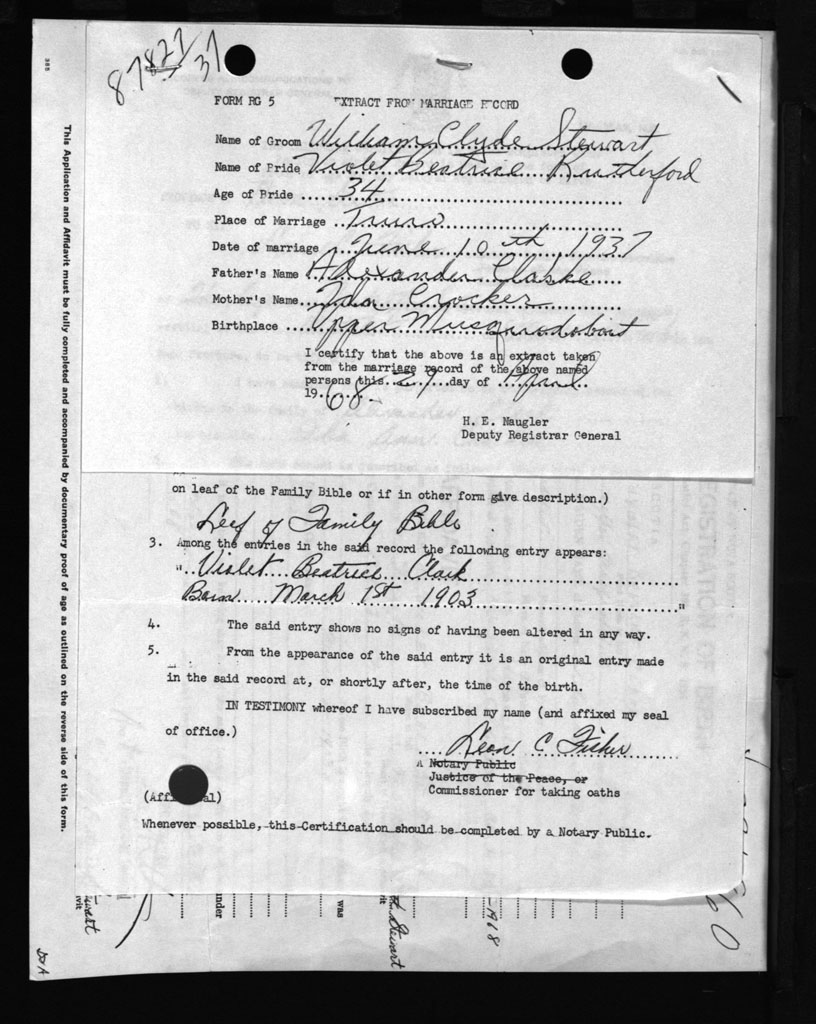 87827
37
FORM RG 5 EXTRACT FROM MARRIAGE RECORD
Name of Groom William Clyde Stewart
Name of Bride Violet Beatrice Rutherford
Age of Bride 34
Place of Marriage Truro
Date of marriage June 10th, 1937
Father's Name Alexander Clarke
Mother's Name Ida Crocker
Birthplace Upper Musquodoboit
I certify that the above is an extract taken
from the marriage record of the above named
persons this 29 day of April
1968.
H. E. Naugler
Deputy Registrar General
on leaf of the Family Bible or if in other form give description.)
Leef of Family Bible
3. Among the entries in the said record the following entry appears:
" Violet Beatrice Clark
Born March 1st 1903 "
4. The said entry shows no signs of having been altered in any way.
5. From the appearance of the said entry it is an original entry made
in the said record at, or shortly after, the time of the birth.
IN TESTIMONY whereof I have subscribed my name (and affixed my seal
of office.)
Leon C. Fisher
A Notary Public
Justice of the Peace, or
Commissioner for taking oaths
(Aff al)
Whenever possible, this Certification should be completed by a Notary Public.
385
This Application and Affidavit must be fully completed and accompanied by documentary proof of age as outlined on the reverse side of this form.
under
was
Stewart
-1968